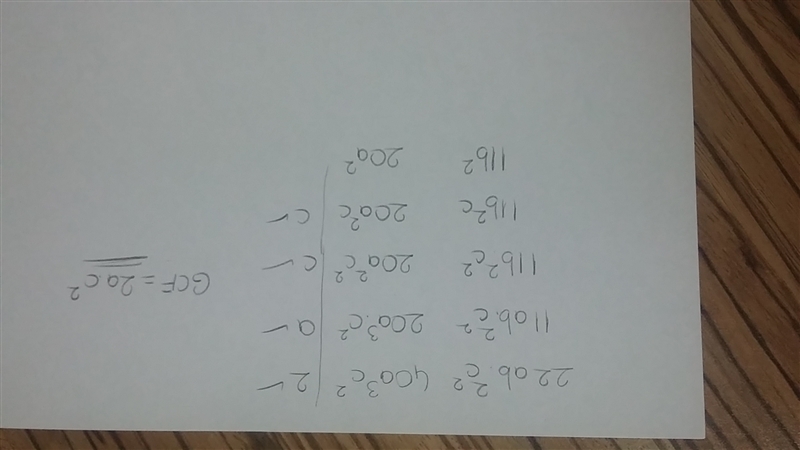 22ab².c² 40a³c² | 2 ✓
11ab².c² 20a³.c² | a ✓
11b²c² 20a²c² | c ✓
11b²c 20a²c | c ✓
11b² 20a²
GCF = 2a.c²